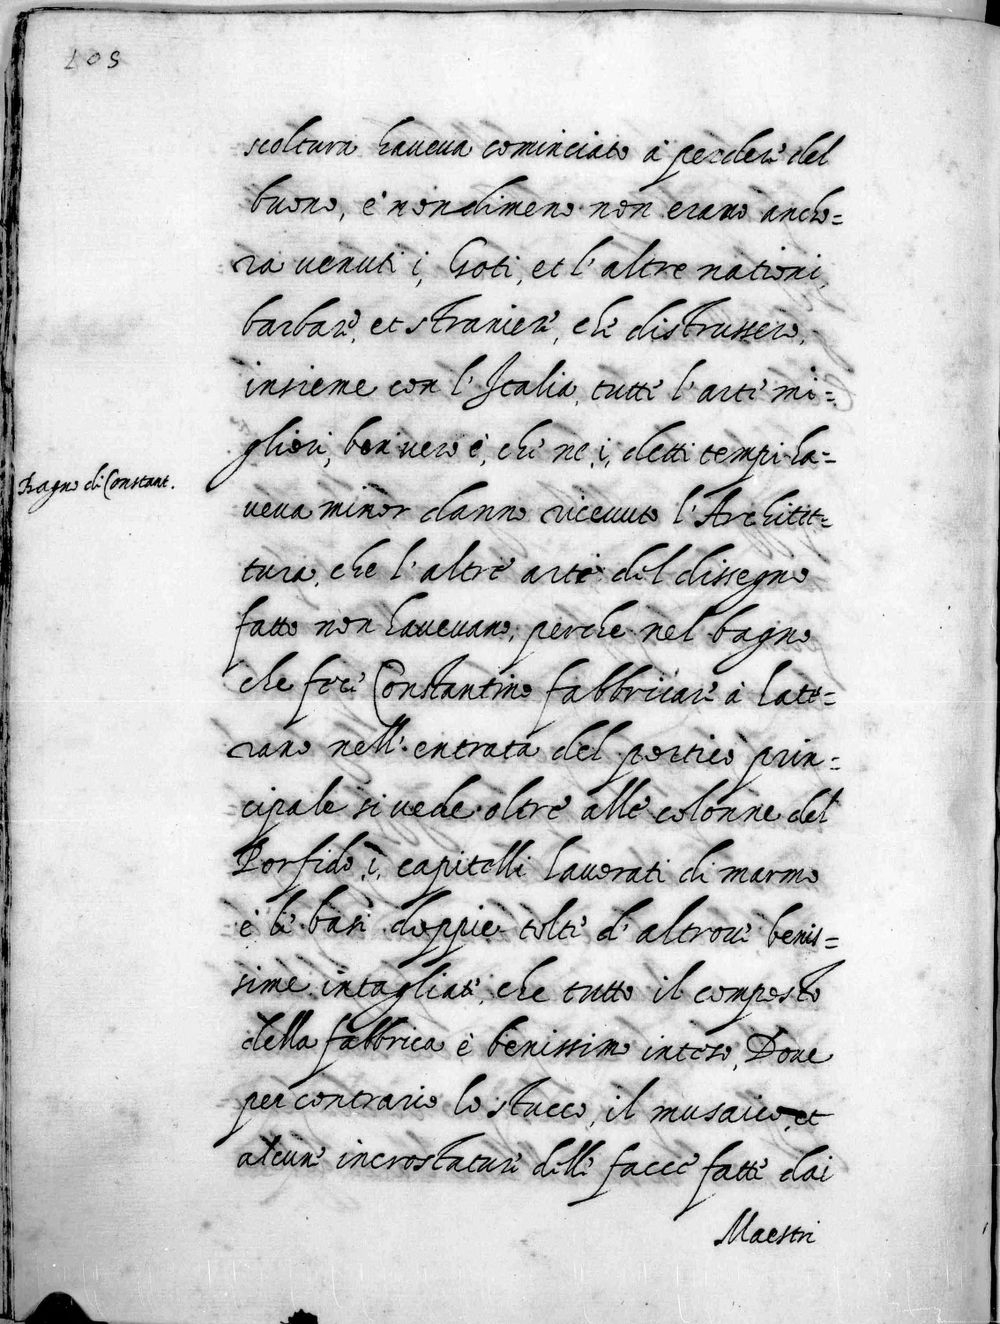 scoltura haueua cominciato à perdere del
buono, è nondimeno non erano ancho=
ra uenuti i, Goti, et l'altre nationi,
barbare, et straniere, che distrussero,
insieme con l'Italia, tutte l'arte mi=
gliori, ben uero è, che ne, i, detti tempi ha=
ueua minor danno riceuuto l'Architet=
tura, che l'altre arte del dissegno
fatto non haueuano, perche nel bagno
che fece Constantino fabbricare à Late=
rano nell'entrata del portico prin=
cipale si uede oltre alle colonne del
Porfido, i, capitelli lauorati di marmo
è le basi doppie tolte d'altroue benis=
sime intagliate, che tutto il composto
della fabbrica è benissimo inteso, Doue
per contrario lo stucco, il musaico, et
alcune incrostature delle facce fatte dai
Maestri
Bagno di Constant.